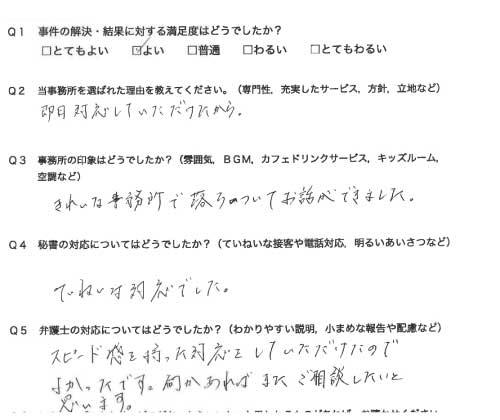 Q1 事件の解決・結果に対する満足度はどうでしたか?
□とてもよい ☑よい □普通 □わるい □とてもわるい
Q2 当事務所を選ばれた理由を教えてください。(専門性,充実したサービス,方針,立地など)
即日対応していただけたから。
Q3 事務所の印象はどうでしたか?(雰囲気,BGM,カフェドリンクサービス,キッズルーム,
空調など)
きれいな事務所で落ちついてお話ができました。
Q4 秘書の対応についてはどうでしたか?(ていねいな接客や電話対応,明るいあいさつなど)
ていねいな対応でした。
Q5 弁護士の対応についてはどうでしたか?(わかりやすい説明,小まめな報告や配慮など)
スピード感を持った対応をしていただけたので
よかったです。何かあればまたご相談したいと
思います。